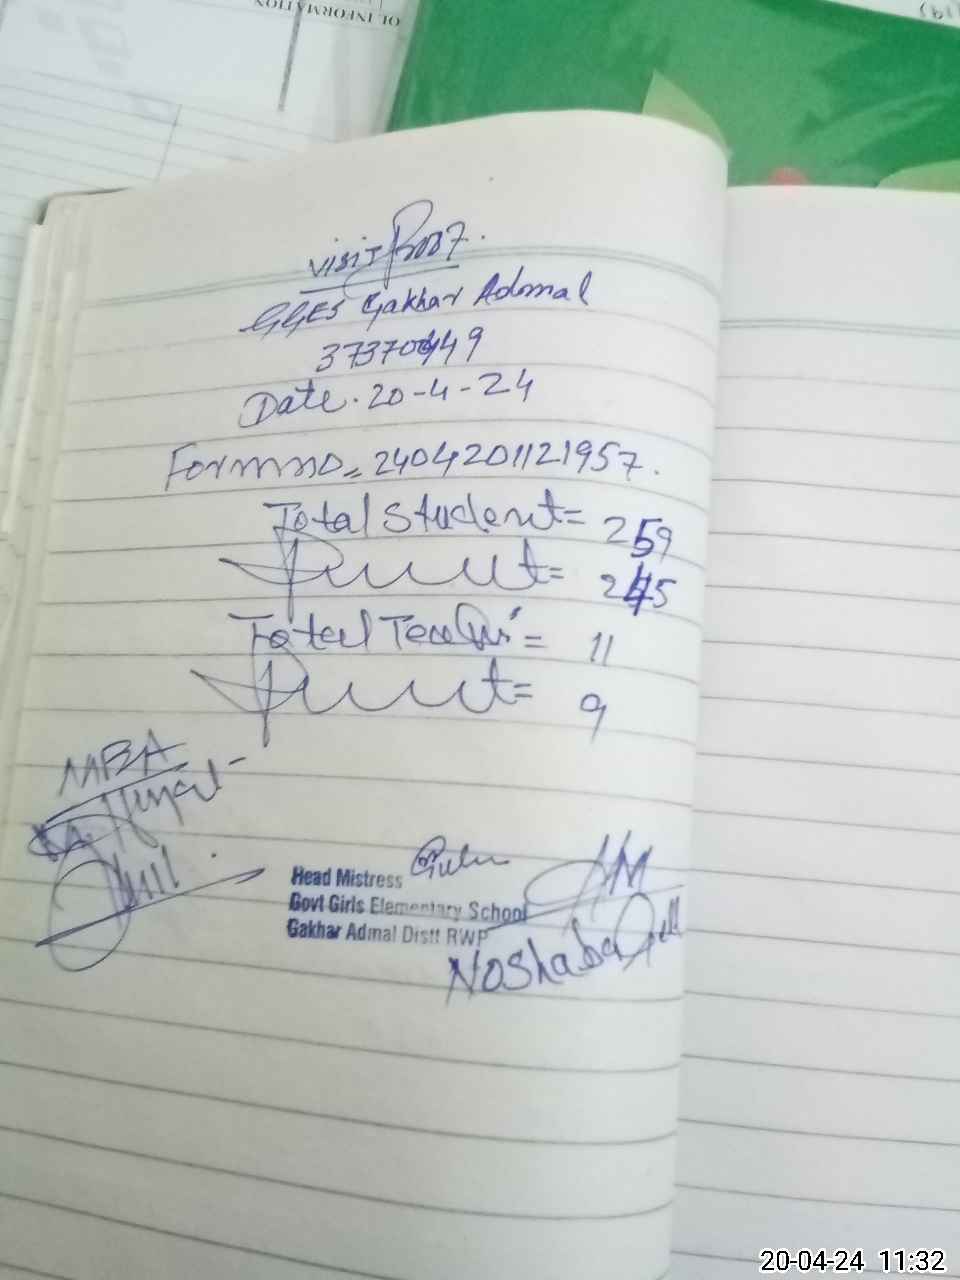 OL INFORMATION
Visit
GGES Gakhar Admal
Date. 20-4-24
Form no = 2404201121957.
Total Student = 259
Present = 245
Total Teacher = 11
Present = 9
MEA
Head Mistress
Govt Girls Elementary School
Gakhar Admal Distt RWP
HM
Noshaba
20-04-24 11:32